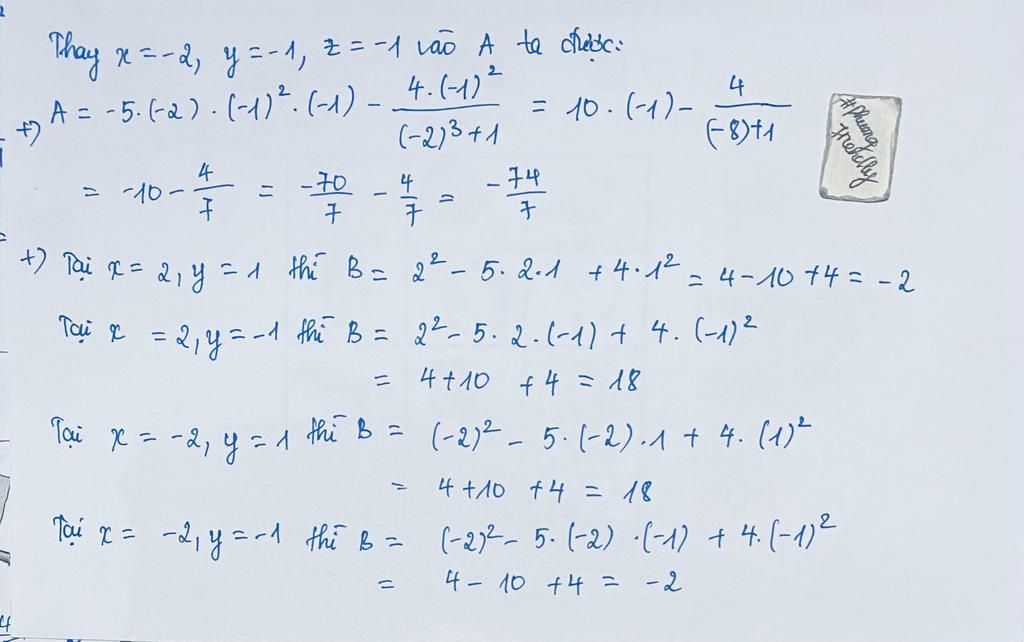 Thay x = -2, y = -1, z = -1 vào A ta được:
+) A = -5.(-2).(-1)².(-1) - \frac{4.(-1)²}{(-2)³+1} = 10.(-1) - \frac{4}{(-8)+1}
= -10 - \frac{4}{7} = \frac{-70}{7} - \frac{4}{7} = \frac{-74}{7}
#phuong
friendly
+) Tại x = 2, y = 1 thì B = 2² - 5.2.1 + 4.1² = 4 - 10 + 4 = -2
Tại x = 2, y = -1 thì B = 2² - 5.2.(-1) + 4.(-1)²
= 4 + 10 + 4 = 18
Tại x = -2, y = 1 thì B = (-2)² - 5.(-2).1 + 4.(1)²
= 4 + 10 + 4 = 18
Tại x = -2, y = -1 thì B = (-2)² - 5.(-2).(-1) + 4.(-1)²
= 4 - 10 + 4 = -2
4